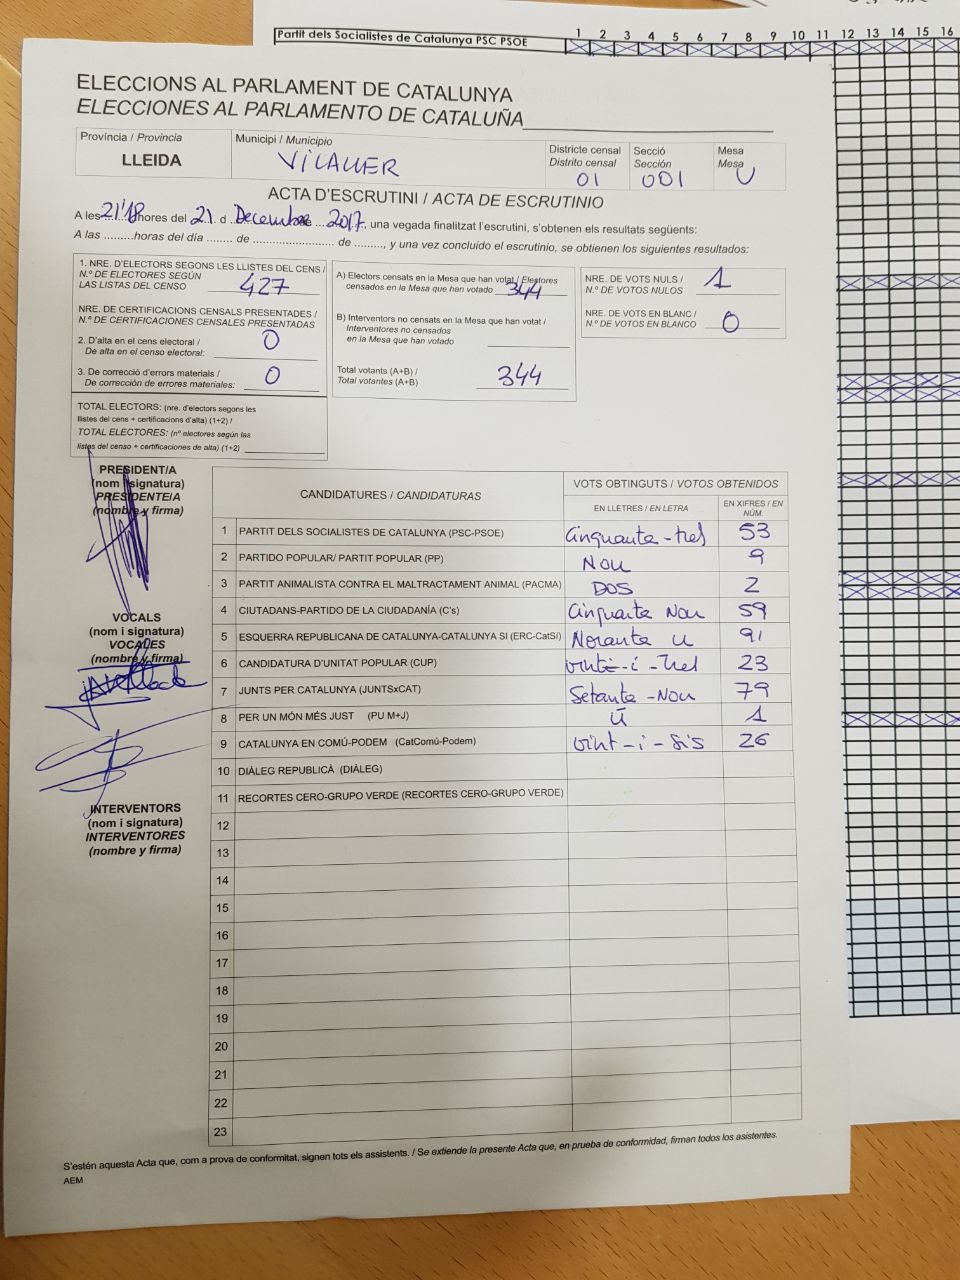 Partit dels Socialistes de Catalunya PSC PSOE 1 2 3 4 5 6 7 8 9 10 11 12 13 14 15 16
ELECCIONS AL PARLAMENT DE CATALUNYA
ELECCIONES AL PARLAMENTO DE CATALUÑA
Província / Provincia
LLEIDA
Municipi / Municipio
VILALLER
Districte censal
Distrito censal
01
Secció
Sección
001
Mesa
Mesa
U
ACTA D'ESCRUTINI / ACTA DE ESCRUTINIO
A les 21'18 hores del 21 d Decembre 2017, una vegada finalitzat l'escrutini, s'obtenen els resultats següents:
A las .........horas del día ........ de ......................... de ........., y una vez concluido el escrutinio, se obtienen los siguientes resultados:
1. NRE. D'ELECTORS SEGONS LES LLISTES DEL CENS /
N.º DE ELECTORES SEGÚN
LAS LISTAS DEL CENSO 427
NRE. DE CERTIFICACIONS CENSALS PRESENTADES /
N.º DE CERTIFICACIONES CENSALES PRESENTADAS
2. D'alta en el cens electoral /
De alta en el censo electoral: 0
3. De correcció d'errors materials /
De corrección de errores materiales: 0
TOTAL ELECTORS: (nre. d'electors segons les
llistes del cens + certificacions d'alta) (1+2) /
TOTAL ELECTORES: (nº electores según las
listas del censo + certificaciones de alta) (1+2)
A) Electors censats en la Mesa que han votat / Electores
censados en la Mesa que han votado 344
B) Interventors no censats en la Mesa que han votat /
Interventores no censados
en la Mesa que han votado
Total votants (A+B) /
Total votantes (A+B) 344
NRE. DE VOTS NULS /
N.º DE VOTOS NULOS 1
NRE. DE VOTS EN BLANC /
N.º DE VOTOS EN BLANCO 0
PRESIDENT/A
(nom i signatura)
PRESIDENTE/A
(nombre y firma)
VOCALS
(nom i signatura)
VOCALES
(nombre y firma)
INTERVENTORS
(nom i signatura)
INTERVENTORES
(nombre y firma)
CANDIDATURES / CANDIDATURAS
VOTS OBTINGUTS / VOTOS OBTENIDOS
EN LLETRES / EN LETRA
EN XIFRES / EN NÚM.
1 PARTIT DELS SOCIALISTES DE CATALUNYA (PSC-PSOE) Cinquanta-tres 53
2 PARTIDO POPULAR/ PARTIT POPULAR (PP) NOU 9
3 PARTIT ANIMALISTA CONTRA EL MALTRACTAMENT ANIMAL (PACMA) DOS 2
4 CIUTADANS-PARTIDO DE LA CIUDADANÍA (C's) Cinquanta Nou 59
5 ESQUERRA REPUBLICANA DE CATALUNYA-CATALUNYA SÍ (ERC-CatSí) Noranta u 91
6 CANDIDATURA D'UNITAT POPULAR (CUP) vint-i-tres 23
7 JUNTS PER CATALUNYA (JUNTSxCAT) Setanta-Nou 79
8 PER UN MÓN MÉS JUST (PU M+J) U 1
9 CATALUNYA EN COMÚ-PODEM (CatComú-Podem) vint-i-sis 26
10 DIÀLEG REPUBLICÀ (DIÀLEG)
11 RECORTES CERO-GRUPO VERDE (RECORTES CERO-GRUPO VERDE)
12
13
14
15
16
17
18
19
20
21
22
23
S'estén aquesta Acta que, com a prova de conformitat, signen tots els assistents. / Se extiende la presente Acta que, en prueba de conformidad, firman todos los asistentes.
AEM